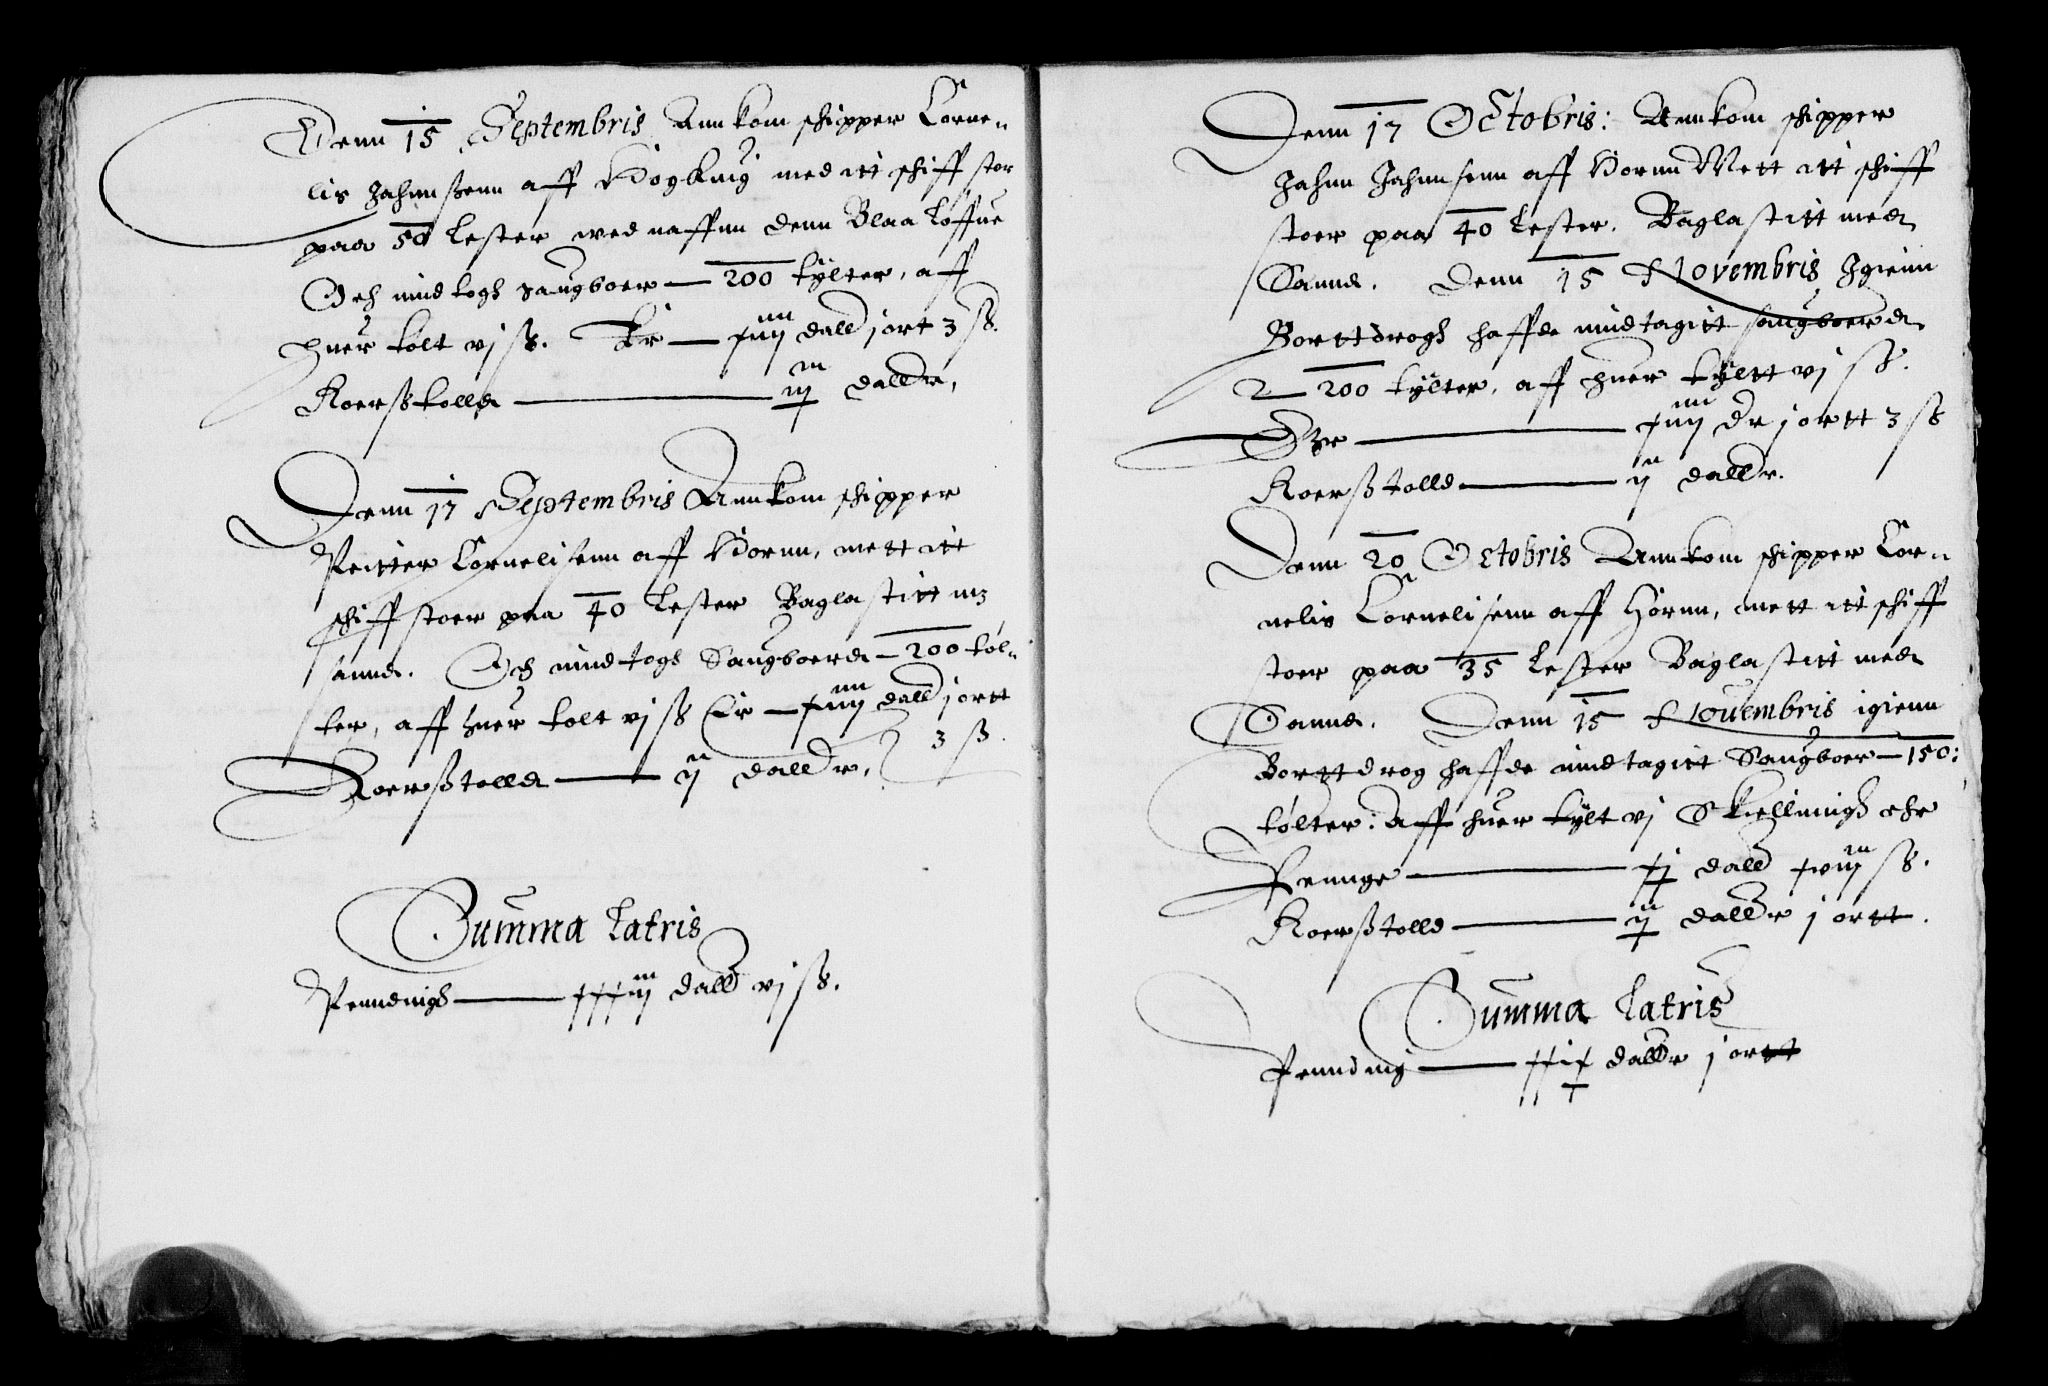 Denn 15 Septembris Annkom schipper Corne¬
lis Jahnnßenn aff med itt schiff stor
paa 50 lester ved naffnn denn Blaa Løffue
Och inndtogh saugboer — 200 tylter, aff
huer tølt vj ß. Er — xiiij dalld j ort 3 ß.
Koerßtolld — iij dalldr,
Denn 17 Septembris Annkom schipper
Peitter Cornelisenn aff Hornn, mett itt
schiff stoer paa 40 lester Baglastitt m3
sannd. Och inndtogh Saugboerd — 200 tøl¬
ter, aff huer tølt vj ß Er — xiiij dalld j ortt
3 ß.
Koerßtolld — ij dalldr,
Summa latris
Penndingh — xxxiij dalld vj ß.
Denn 17 Octobris: Annkom schipper
Jahnn Jahnnsenn aff Hornn Mett itt schiff
stoer paa 40 lester. Baglastitt med
Sannd. Denn 15 Novembris Igienn
Borttdrogh haffde inndtagitt saugboerd
200 tylter, aff huer tyltt vj ß.
Er — xiiij dr j ortt 3 ß
Koerßtolld — ij dalldr.
Denn 20 Octobris Annkom schipper Cor¬
nelis Cornelisenn aff Hornn, mett itt schiff
stoer paa 35 lester Baglastitt med
Sannd. Denn 15 Nouembris igienn
Borttdrog haffde inndtagitt Saugboer — 150:
tølter: Aff huer tylt vj Skellinngh ehr
Pennge — xj dalld xviij ß.
Koerßtolld — ij dalldr j ortt.
Summa latris
Penndinng — xxix dalldr j ortt